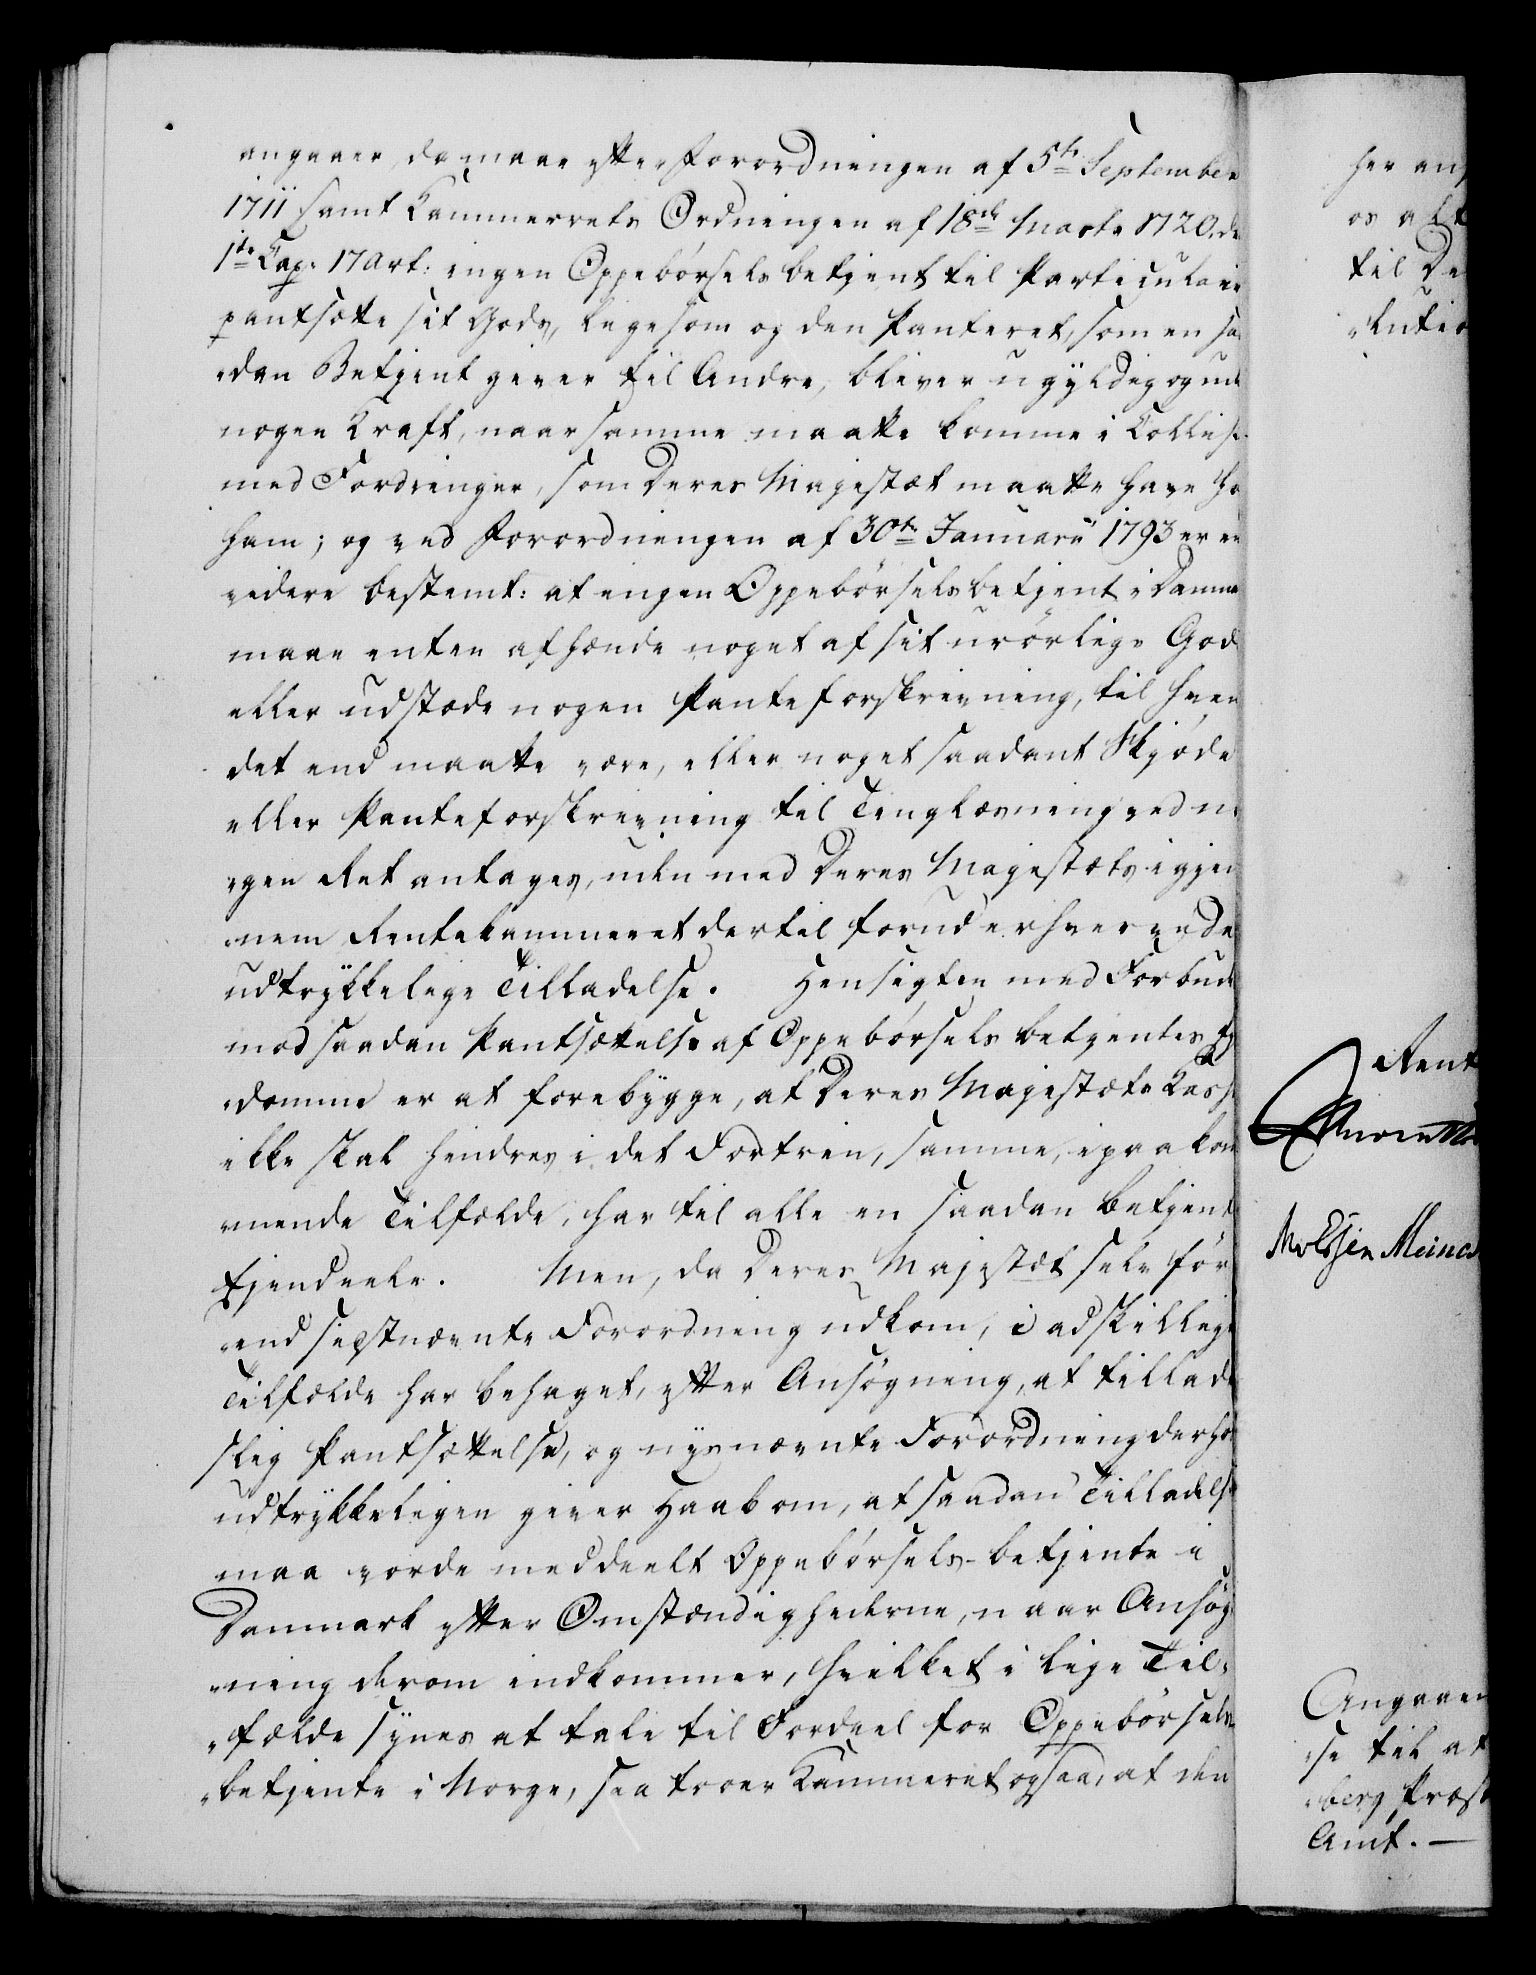 angaaer, da maae efter Forordningen af 5te September
1711 samt Kammerrets Ordningen af 18de Marts 1720. de
1ste Cap. 17 Art: ingen Oppebørselsbetjent til Particulaire
pantsætte sit Gods, ligesom og den Panteret, som en saa
„dan Betjent giver til Andre, bliver ugyldig og uden
nogen Kraft, naar samme maatte komme i Collisi
med Fordringer, som Deres Majestæt maatte have ho
ham; og ved Forordningen af 30te Januarii 1793 er en
videre bestemt: at ingen Oppebørselsbetjent i Danma
maae enten afhænde noget af sit urørlige God
eller udstæde nogen Panteforskrivning, til hvem
det end maatte være, eller noget saadant Skjøde
eller Panteforskrivning til Tinglæsning ved no
„gen Ret antages, uden med Deres Majestæts igjen
„nem Rentekammeret dertil forud erhvervede
udtrykkelige Tilladelse. Hensigten med Forbude
mod saadan Pantsættelse af Oppebørsels betjentes Ej
„domme er at forebygge, at Deres Majestæts Kasse
ikke skal hindres i det Fortrin, samme, i paakom
„mende Tilfælde, har til alle en saadan betjents
Ejendeele. Men, da Deres Majestæt selv før
„end sidstnævnte Forordning udkom, i adskillige
Tilfælde har behaget, efter Ansøgning, at tillade
slig Pantsættelse, og nysnævnte Forordning derhos
udtrykkeligen giver Haab om, at saadan Tilladelse
maa vorde meddeelt Oppebørsels-betjente i
Danmark efter Omstændighederne, naar Ansøg
„ning derom indkommer, hvilket i lige Til„
„fælde synes at tale til Fordeel for Oppebørsels„
„betjente i Norge, saa troer Kammeret ogsaa, at den
her an
os al
til De
Rent
Angaaen
„se til at
„berg Præst
Amt. —